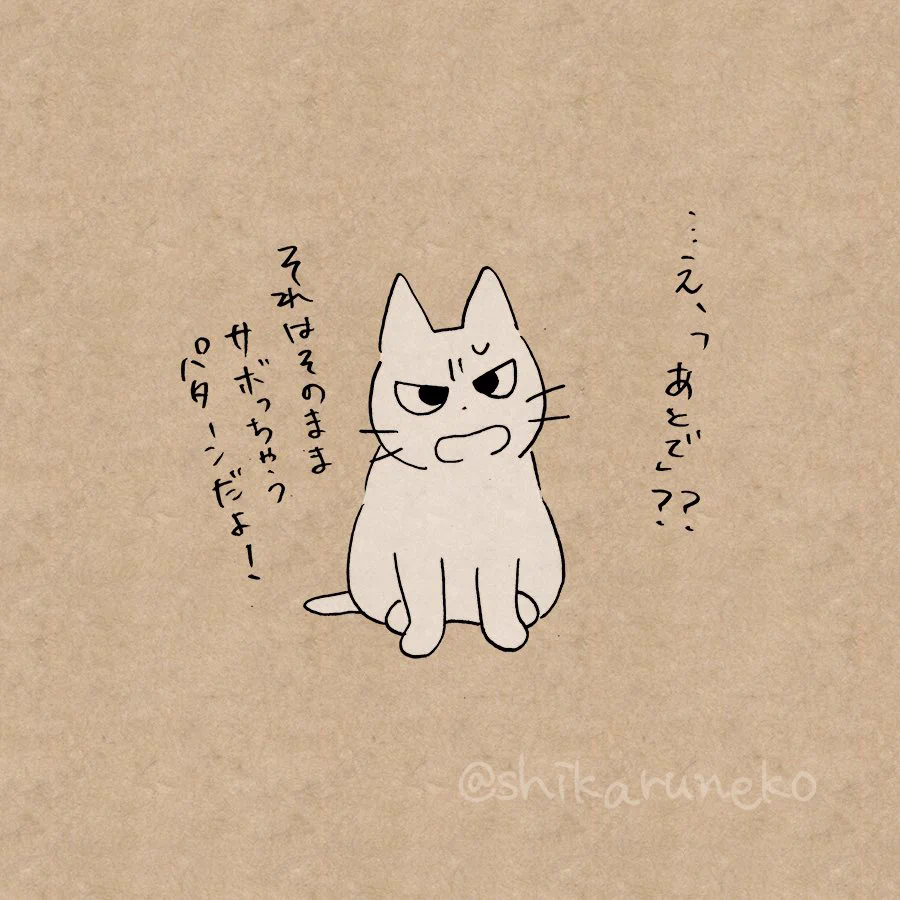 …え、「あとで」??
それはそのまま
サボっちゃう
パターンだよ!
@shikaruneko